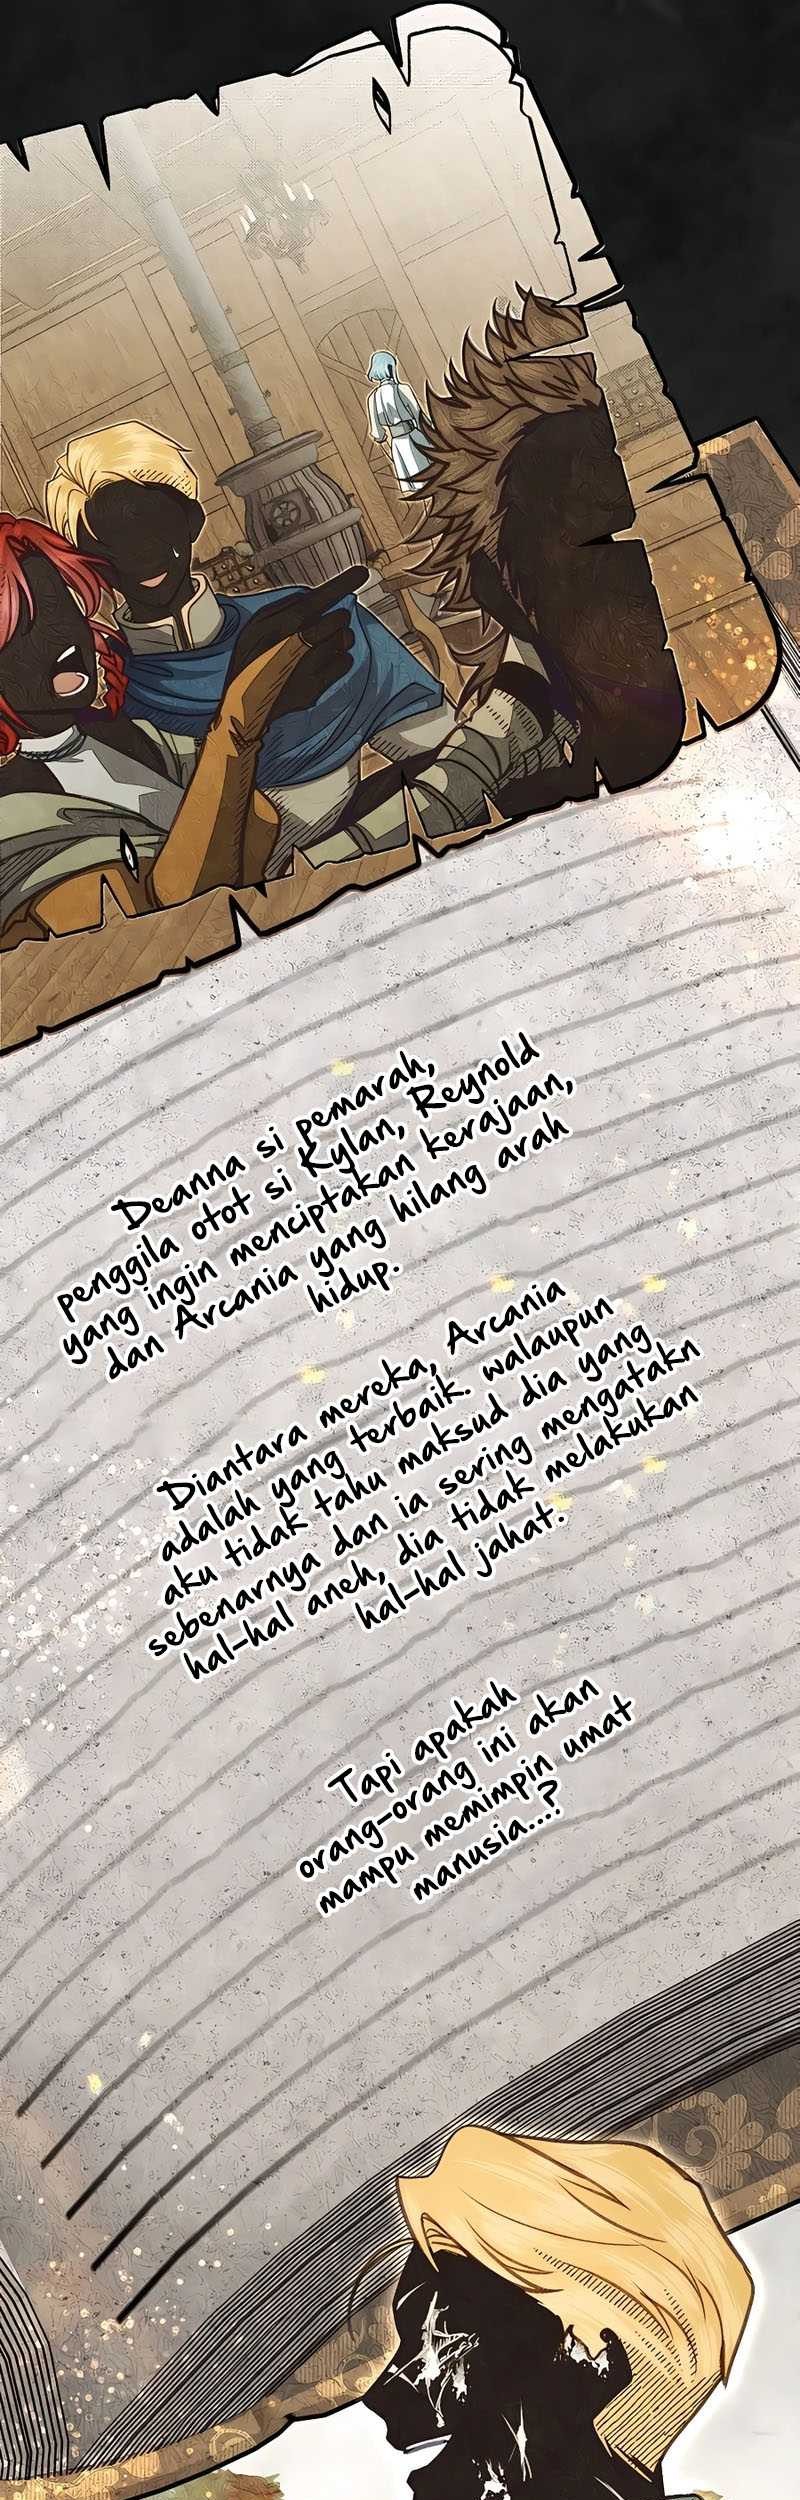 Deanna si pemarah,
penggila otot si Kylan, Reynold
yang ingin menciptakan kerajaan,
dan Arcania yang hilang arah
hidup.
Diantara mereka, Arcania
adalah yang terbaik. walaupun
aku tidak tahu maksud dia yang
sebenarnya dan ia sering mengatakn
hal-hal aneh, dia tidak melakukan
hal-hal jahat.
Tapi apakah
orang-orang ini akan
mampu memimpin umat
manusia...?